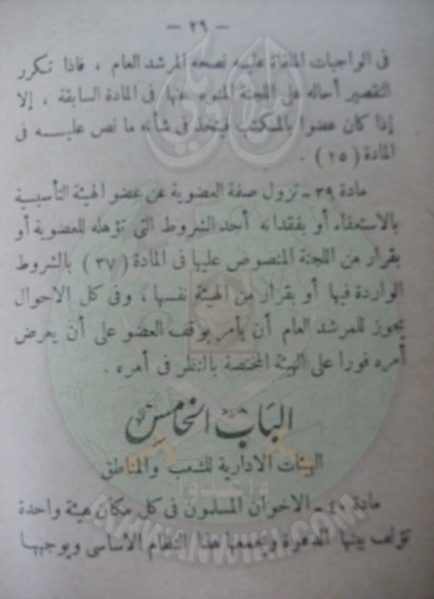 — ٢٩ —
فى الواجبات الملقاة عليه نصحه المرشد العام ، فاذا تكرر
التقصير أحاله على اللجنة المنوه عنها فى المادة السابقة ، إلا
إذا كان عضوا بالمكتب فيتخذ فى شأنه ما نص عليه فى
المادة (٢٥) .
مادة ٣٩ ـ تزول صفة العضوية عن عضو الهيئة التأسيسية
بالاستعفاء أو بفقدانه أحد الشروط التى تؤهله للعضوية أو
بقرار من اللجنة المنصوص عليها فى المادة (٣٧) بالشروط
الواردة فيها أو بقرار من الهيئة نفسها ، وفى كل الاحوال
يجوز للمرشد العام أن يأمر بوقف العضو على أن يعرض
أمره فورا على الهيئة المختصة بالنظر فى أمره .
الباب الخامس
الهيئات الادارية للشعب والمناطق
مادة ٤٠ ـ الاخوان المسلمون فى كل مكان هيئة واحدة
تؤلف بينها الدعوة ويجمعها هذا النظام الأساسى ويوجهها
IKHWANWIKI.COM